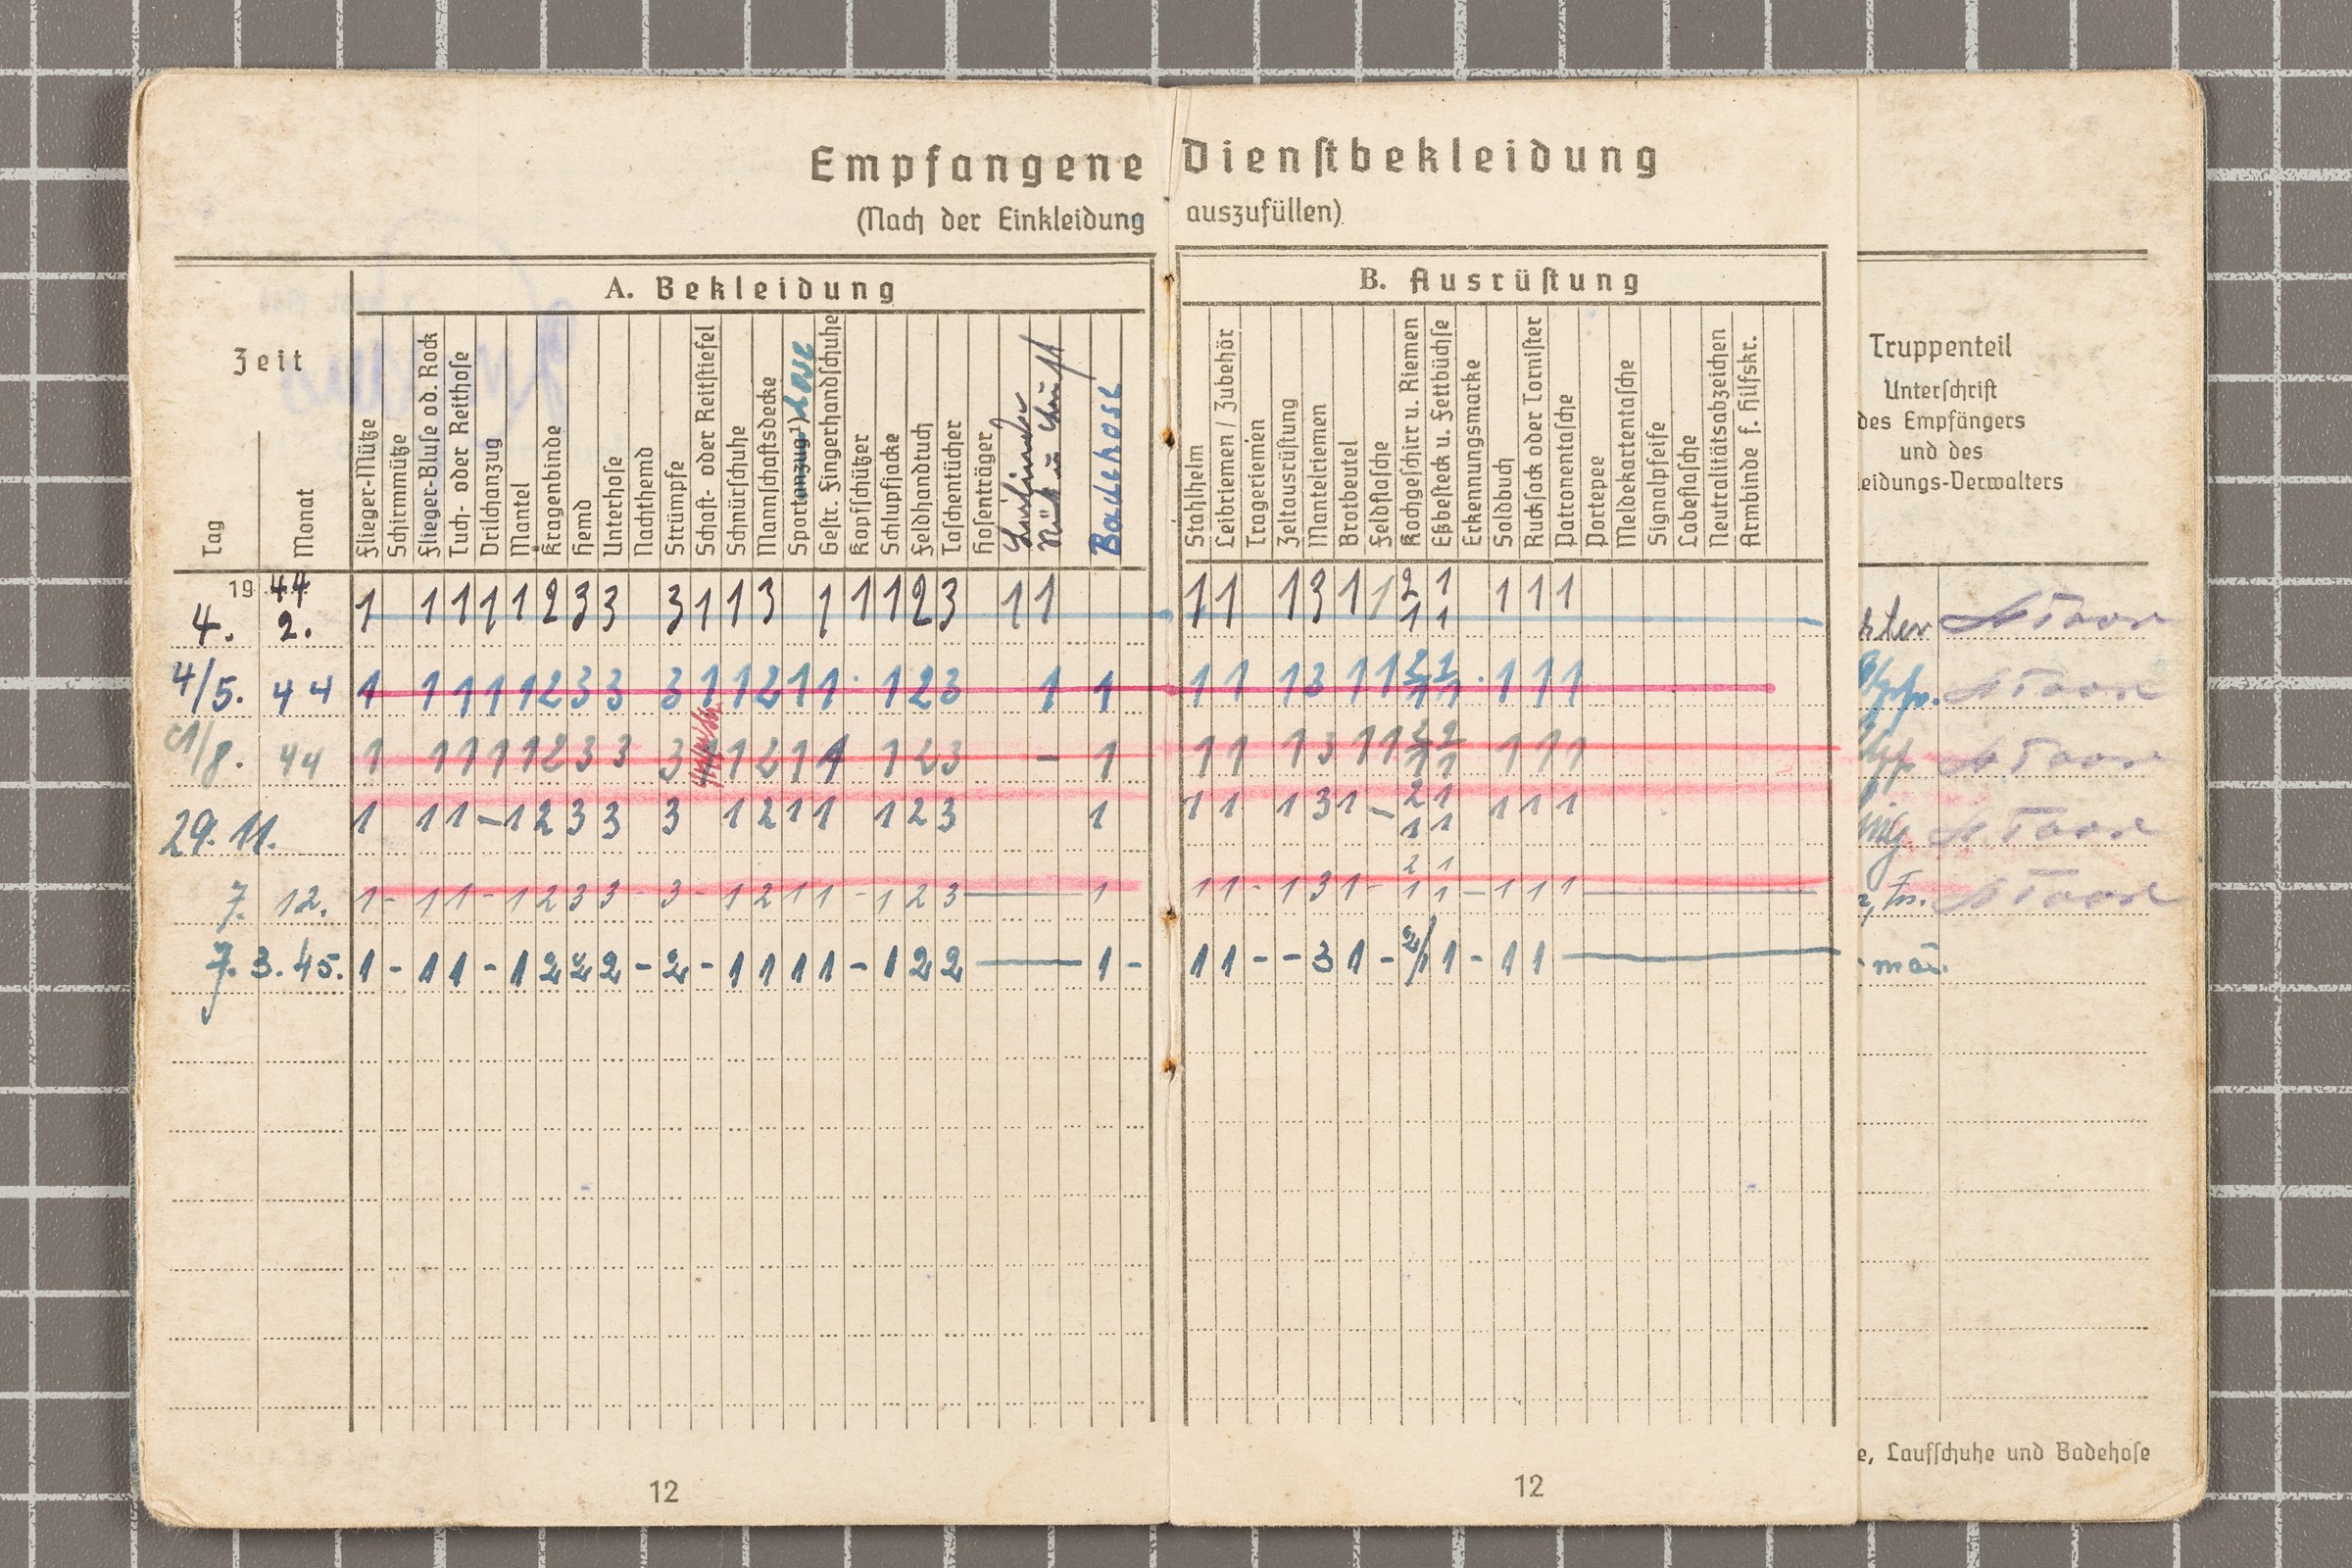 Empfangene Dienstbekleidung
(Nach der Einkleidung auszufüllen)
Zeit
Tag
Monat
A. Bekleidung
Flieger-Mütze
Schirmmütze
Flieger-Bluse od. Rock
Tuch- oder Reithose
Drilchanzug
Mantel
Kragenbinde
Hemd
Unterhose
Nachthemd
Strümpfe
Schaft- oder Reitstiefel
Schnürschuhe
Mannschaftsdecke
Sportanzug¹) hose
Gestr. Fingerhandschuhe
Kopfschützer
Schlupfjacke
Feldhandtuch
Taschentücher
Hosenträger
Badehose
B. Ausrüstung
Stahlhelm
Leibriemen / Zubehör
Trageriemien
Zeltausrüstung
Mantelriemen
Brotbeutel
Feldflasche
Kochgeschirr u. Riemen
Eßbesteck u. Fettbüchse
Erkennungsmarke
Soldbuch
Rucksack oder Tornister
Patronentasche
Portepee
Meldekartentasche
Signalpfeife
Labeflasche
Neutralitätsabzeichen
Armbinde f. Hilfskr.
Truppenteil
Unterschrift
des Empfängers
und des
leidungs-Verwalters
19 44
4. 2. 1 1 1 1 1 2 3 3 3 1 1 3 1 1 1 2 3 1 1 1 1 1 3 1 1 2/1 1/1 1 1 1
4/5. 44 1 1 1 1 1 2 3 3 3 1 1 2 1 1 1 2 3 1 1 1 1 1 3 1 1 2/1 1/1 1 1 1
1/8. 44 1 1 1 1 1 2 3 3 3 1 2 1 1 1 2 3 - 1 1 1 1 3 1 1 1 1 1
29. 11. 1 1 1 - 1 2 3 3 3 1 2 1 1 1 2 3 1 1 1 1 3 1 - 2/1 1/1 1 1 1
7. 12. 1 - 1 1 - 1 2 3 3 - 3 - 1 2 1 1 - 1 2 3 — 1 1 1 - 1 3 1 - 2/1 1/1 - 1 1 1 —
7. 3. 45. 1 - 1 1 - 1 2 2 2 - 2 - 1 1 1 1 - 1 2 2 — 1 - 1 1 - - 3 1 - 2/1 1 - 1 1 —
e, Laufschuhe und Badehose
12
12